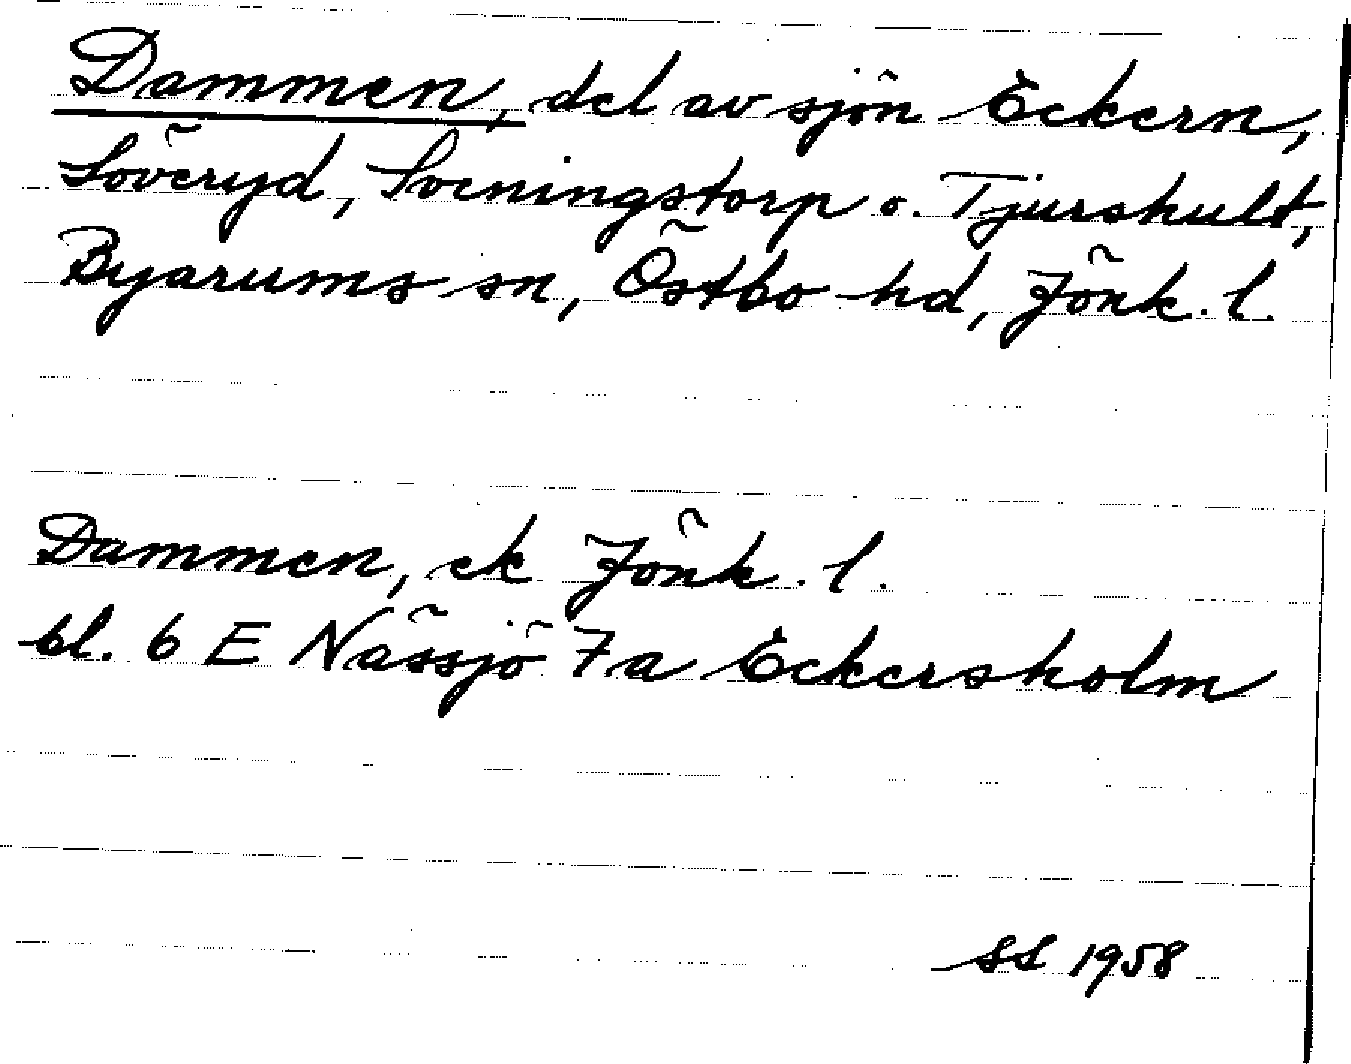 Dammen, del av sjön Eckern,
Söveryd, Sveningstorp o. Tjurshult,
Byarums sn, Östbo hd, Jönk. l.
Dammen, ek Jönk. l.
bl. 6 E Nässjö 7a Eckersholm
SS 1958